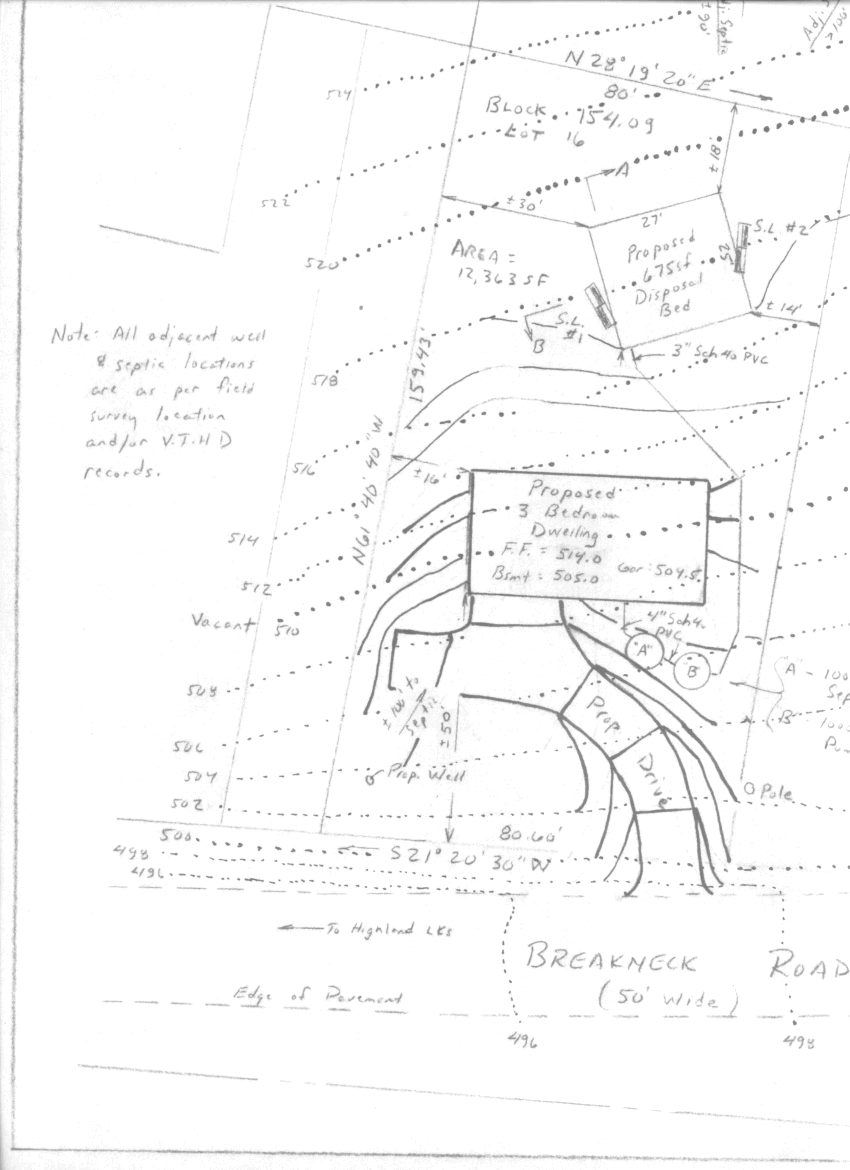 ± 90'
Adj. Septic
Adj. S
> 100'
N 28° 19' 20" E
80'
524
BLOCK 154.09
LOT 16
± 18'
A
522
± 30'
27'
S.L. #2
520
AREA =
12,363 SF
Proposed
675 sf
Disposal
Bed
25'
± 14'
S.L.
#1
B
3" Sch 40 PVC
Note: All adjacent well
& septic locations
are as per field
survey location
and/or V.T.H.D
records.
518
159.43'
N61° 40' 40" W
516
± 16'
514
512
Vacant
510
Proposed
3 Bedroom
Dwelling
F.F. = 514.0
Bsmt = 505.0
Gar: 504.5
4" Sch 40
PVC
"A"
"B"
"A" - 100
Sep
"B" - 100
Pu
508
± 100' to
Septic
± 50'
Prop
Drive
506
504
Prop. Well
Pole
502
500
80.60'
498
S21° 20' 30" W
496
To Highland Lks
BREAKNECK ROAD
(50' Wide)
Edge of Pavement
496
498